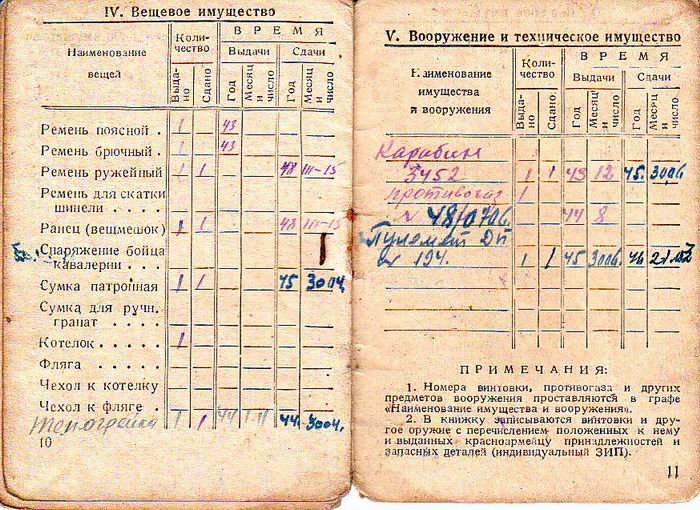 IV. Вещевое имущество
Наименование вещей
Коли-
чество
ВРЕМЯ
Выдачи
Сдачи
Выда-
но
Сдано
Год
Месяц и число
Год
Месяц и число
Ремень поясной . 1 43
Ремень брючный . 1 43
Ремень ружейный 1 1 48 III-15
Ремень для скатки
шинели . . . .
Ранец (вещмешок) 1 1 48 III-15
Снаряжение бойца
кавалерии . . . .
Сумка патронная 1 1 45 30 04.
Сумка для ручн.
гранат . . . . .
Котелок . . . . 1
Фляга . . . .
Чехол к котелку
Чехол к фляге .
1 1 44 44. 3004.
10
V. Вооружение и техническое имущество
Наименование
имущества
и вооружения
Коли-
чество
ВРЕМЯ
Выдачи
Сдачи
Выда-
но
Сдано
Год
Месяц и число
Год
Месяц и число
Карабин
3452 1 1 43 12 45. 3006
противогаз 1
48/0706. 44 8
Пулемет ДП
№ 194. 1 1 45 3006. 46
ПРИМЕЧАНИЯ:
1. Номера винтовки, противогаза и других
предметов вооружения проставляются в графе
«Наименование имущества и вооружения».
2. В книжку записываются винтовки и дру-
гое оружие с перечислением положенных к нему
и выданных красноармейцу принадлежностей и
запасных деталей (индивидуальный ЗИП).
11